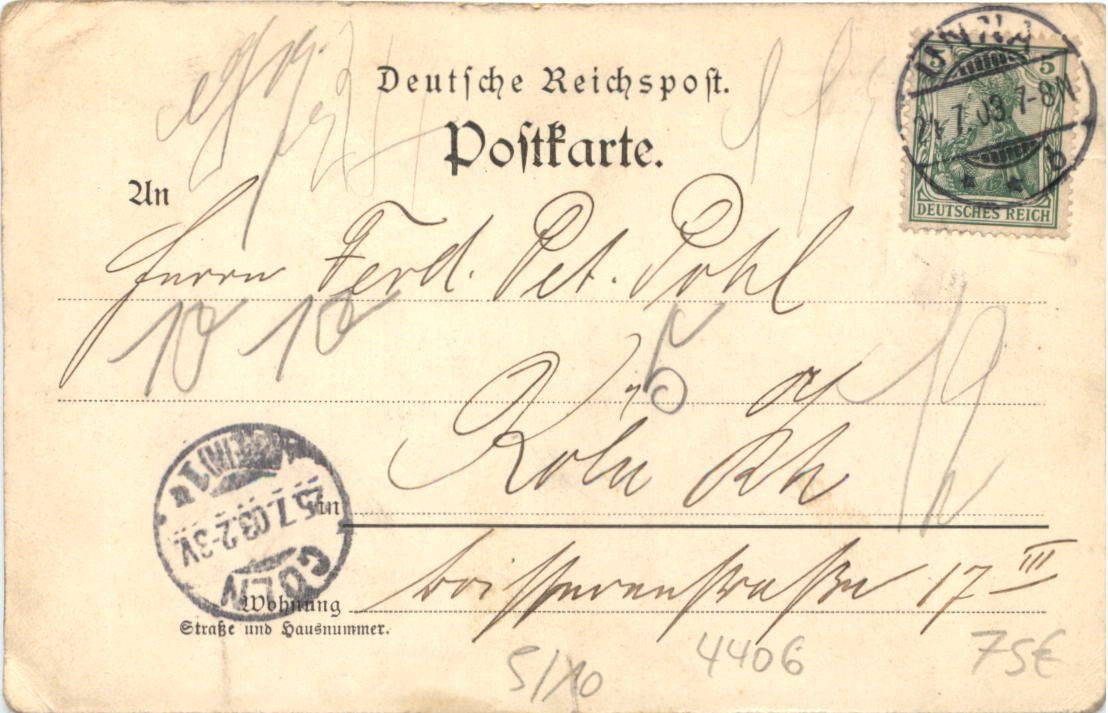 Deutsche Reichspost.
Postkarte.
5
7.03. 7-8N
DEUTSCHES REICH
An
Herrn Ferd. Pet. Pohl
10 10 5
Köln a/Rh
in
25.7.03.2-3V.
CÖLN
Wohnung
Straße und Hausnummer.
17 III
5/10 4406 75€